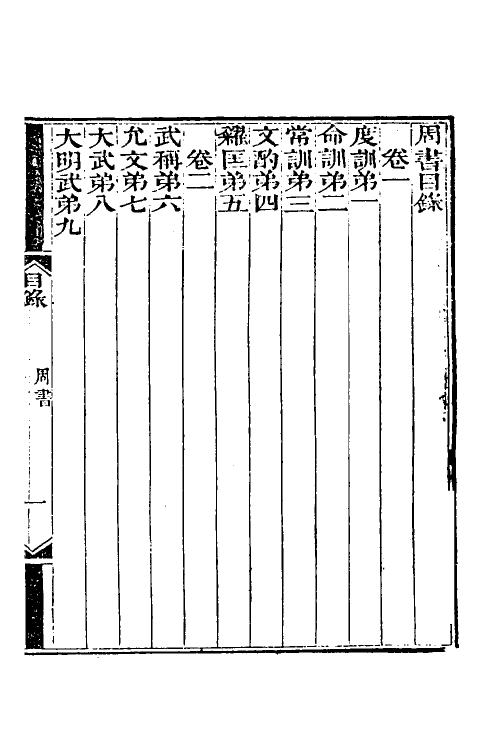 周書目錄
卷一
度訓弟一
命訓弟二
常訓弟三
文酌弟四
糴匡弟五
卷二
武稱弟六
允文弟七
大武弟八
大明武弟九
目錄
周書
一